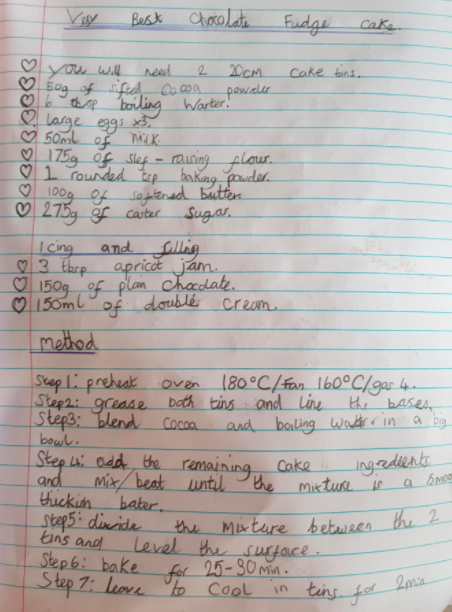 Very Best Chocolate Fudge Cake.
you will need 2 20cm cake tins.
50g of sifted cocoa powder
6 tbsp boiling warter.
large eggs x3.
50ml of milk.
175g of slef-raising flour.
1 rounded tsp baking powder.
100g of softened butter
275g of caster sugar.
Icing and filling
3 tbsp apricot jam.
150g of plain chocolate.
150ml of double cream.
method
Step1: preheat oven 180°C/Fan 160°C/gas 4.
Step2: grease both tins and line the bases.
Step3: blend cocoa and boiling water in a big
bowl.
Step 4: add the remaining cake ingredients
and mix/beat until the mixture is a smoo
thickish bater.
Step5: divide the mixture between the 2
tins and level the surface.
Step6: bake for 25-30 min.
Step 7: leave to cool in tins for 2min